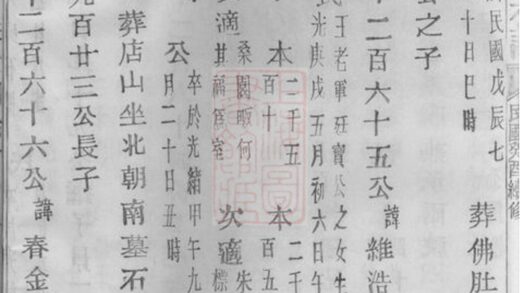 民國癸酉續修
民國戊辰七
十日巳時
葬佛肚
公之子
十二百六十五公
諱維浩
王老軍旺寶公之女生
光庚戌五月初六日午
本
二千五
百十
本
二千
百五
適
桑園畈何
其福為室
次適
朱
標
公
卒於光緒甲午九
月二十日丑時
葬店山坐北朝南墓石
九百廿三公長子
十二百六十六公
諱春金